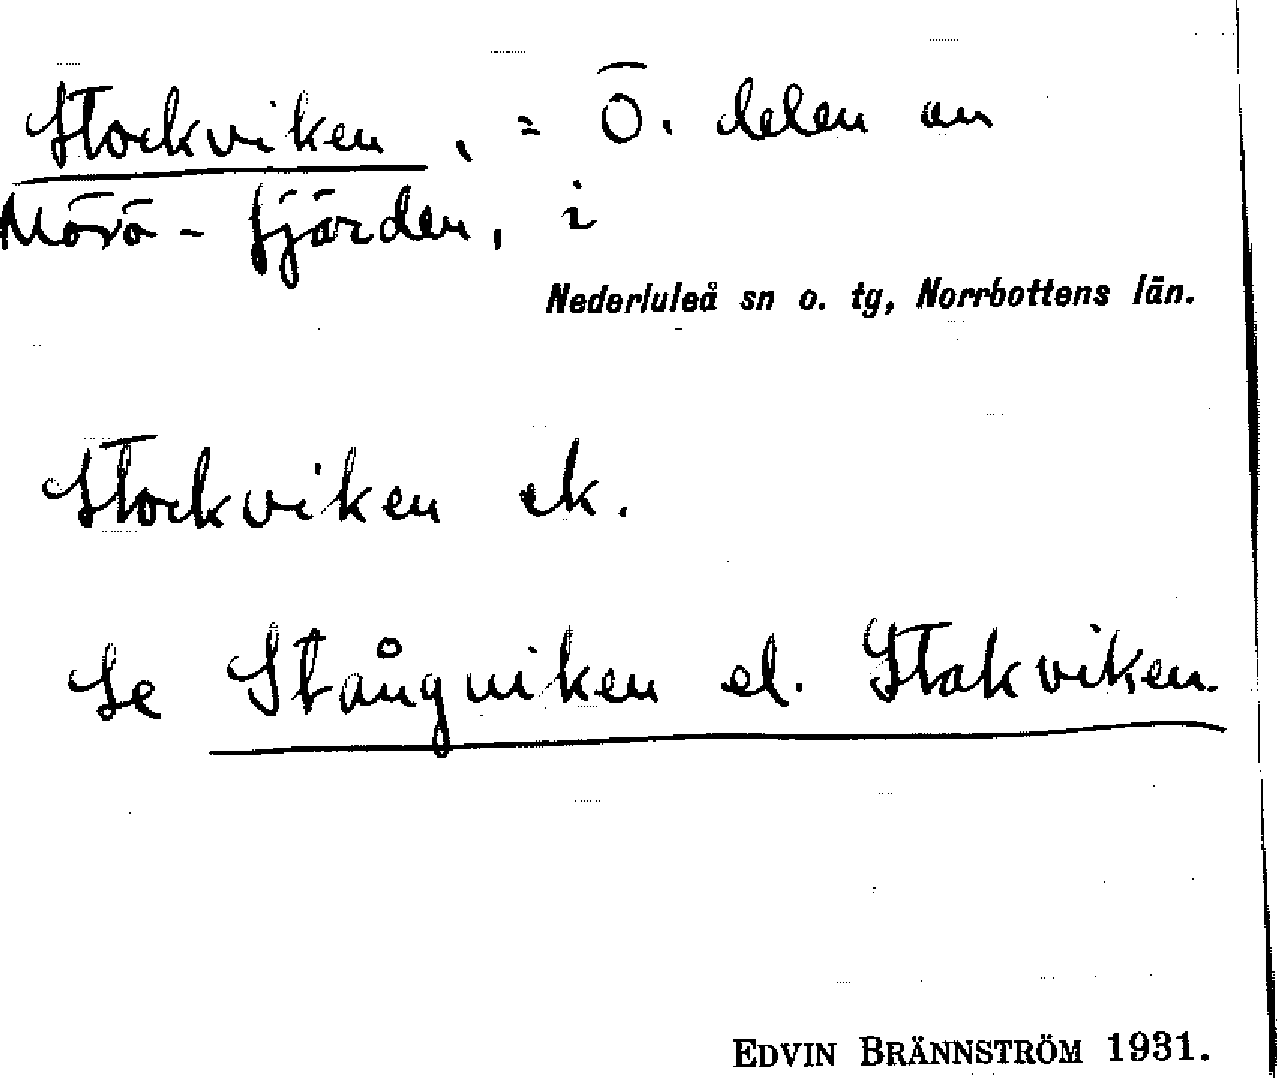 Stockviken, = Ö. delen av
Mörö-fjärden, i
Nederluleå sn o. tg, Norrbottens län.
Stockviken ek.
Se Stångviken el. Stakviken.
EDVIN BRÄNNSTRÖM 1931.